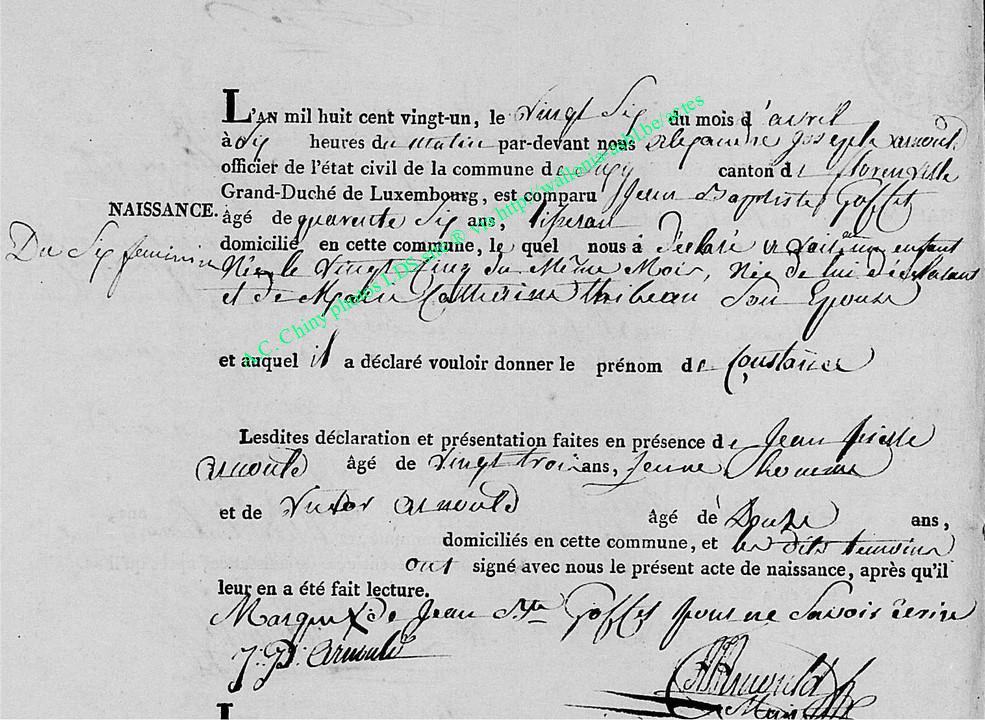 L'AN mil huit cent vingt-un, le vingt Six du mois d'avril
à dix heures du matin par-devant nous Joseph arnould
officier de l'état civil de la commune de canton de florenville
Grand-Duché de Luxembourg, est comparu Jean Baptiste Goffet
NAISSANCE.
âgé de quarante Six ans,
domicilié en cette commune, le quel nous a Déclaré enfant
Du Sex feminin
Née le vingt Cinq du Même Mois, Née de lui Déclarant
et de Marie Catherine thibeau Son Epouse
et auquel il a déclaré vouloir donner le prénom de Constance
Lesdites déclaration et présentation faites en présence de Jean pierre
arnould âgé de vingt trois ans, jeune homme
et de Victor arnould âgé de Douze ans,
domiciliés en cette commune, et les dits temoins
ont signé avec nous le présent acte de naissance, après qu'il
leur en a été fait lecture.
Marque X de Jean Bte Goffet pour ne Savoir Ecrire
J: P: Arnould
Arnould
L
A.C. Chiny photos LDS sur ® vis http://wallonia-asbl.be/actes